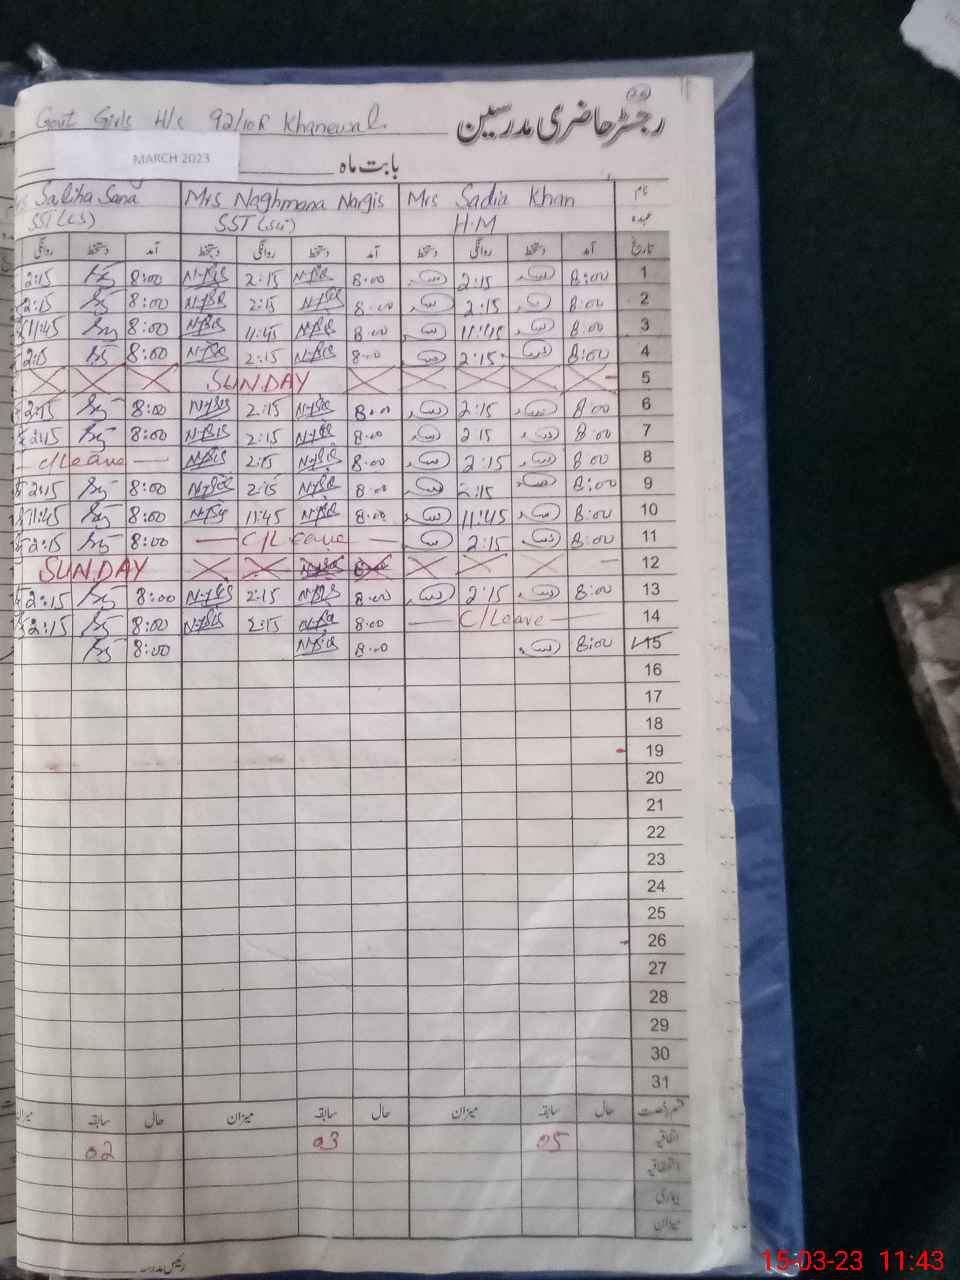 Govt Girls H/s 92/10R Khanewal رجسٹر حاضری مدرسین
MARCH 2023 بابت ماہ
Saliha Sana Mrs Naghmana Nargis Mrs Sadia Khan نام
SST (CS) SST (Sci) H.M عہدہ
روانگی دستخط آمد دستخط روانگی دستخط آمد دستخط روانگی دستخط آمد تاریخ
2:15 8:00 2:15 8:00 2:15 8:00 1
2:15 8:00 2:15 8:00 2:15 8:00 2
11:45 8:00 11:45 8:00 11:45 8:00 3
2:15 8:00 2:15 8:00 2:15 8:00 4
SUNDAY 5
2:15 8:00 2:15 8:00 2:15 8:00 6
2:15 8:00 2:15 8:00 2:15 8:00 7
C/Leave 2:15 8:00 2:15 8:00 8
2:15 8:00 2:15 8:00 2:15 8:00 9
11:45 8:00 11:45 8:00 11:45 8:00 10
2:15 8:00 C/Leave 2:15 8:00 11
SUNDAY 12
2:15 8:00 2:15 8:00 2:15 8:00 13
2:15 8:00 2:15 8:00 C/Leave 14
8:00 8:00 8:00 15
16
17
18
19
20
21
22
23
24
25
26
27
28
29
30
31
میزان سابقہ حال میزان سابقہ حال میزان سابقہ حال قسم رخصت
02 03 05 اتفاقیہ
استحقاقیہ
بیماری
میزان
رئیس مدرسہ
15-03-23 11:43